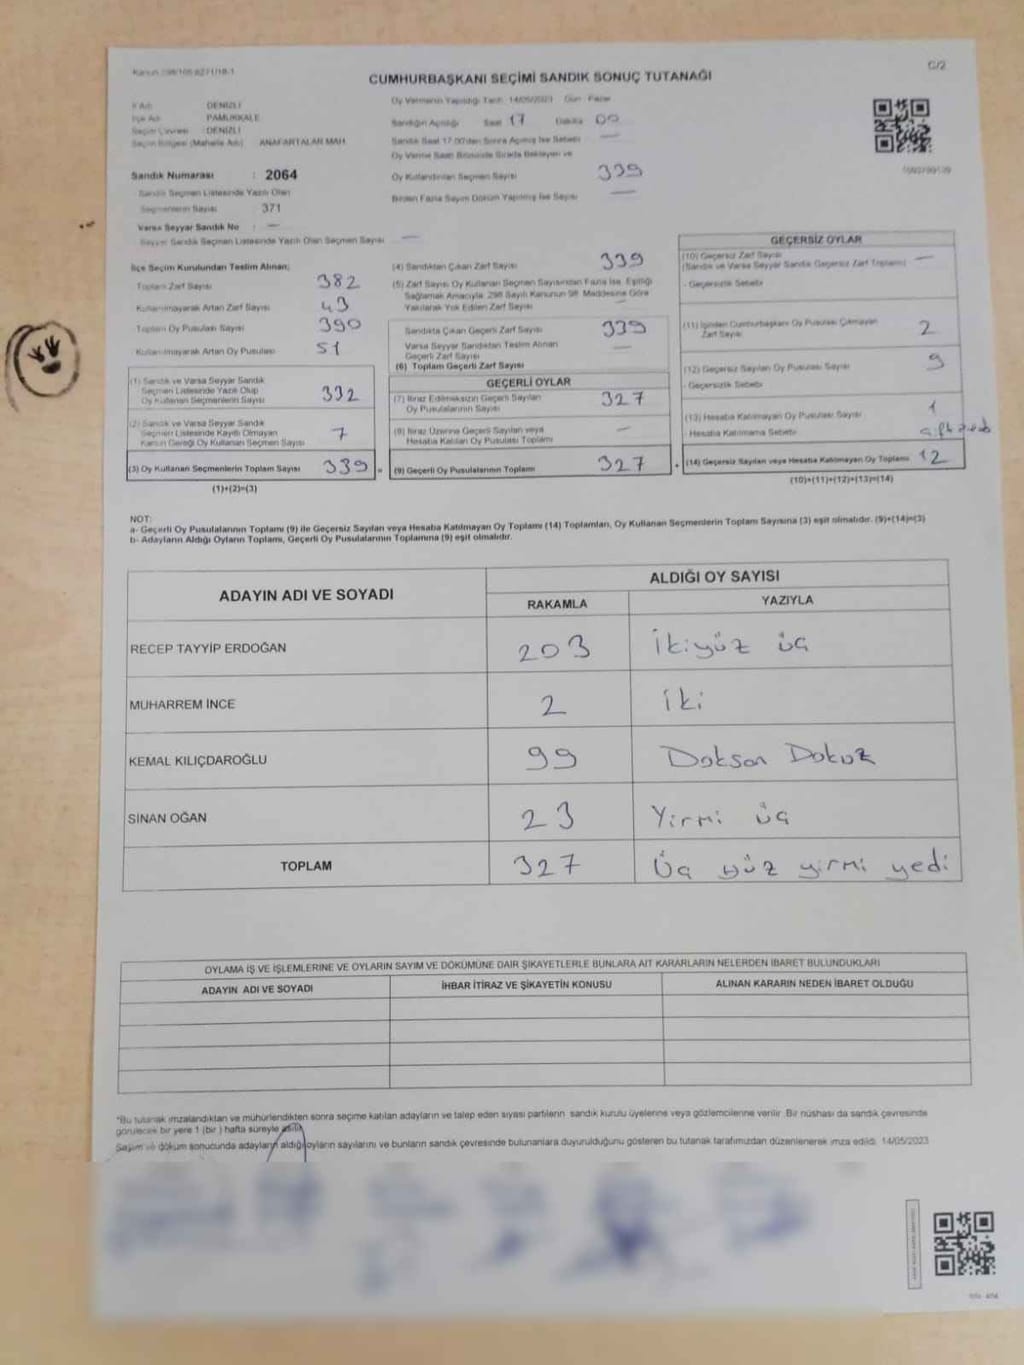 C/2
CUMHURBAŞKANI SEÇİMİ SANDIK SONUÇ TUTANAĞI
İl Adı : DENİZLİ
İlçe Adı : PAMUKKALE
Seçim Çevresi : DENİZLİ
Seçim Bölgesi (Mahalle Adı) ANAFARTALAR MAH.
Sandık Numarası : 2064
Sandık Seçmen Listesinde Yazılı Olan
Seçmenlerin Sayısı : 371
Varsa Seyyar Sandık No : —
Seyyar Sandık Seçmen Listesinde Yazılı Olan Seçmen Sayısı —
Oy Vermenin Yapıldığı Tarih 14/05/2023 Gün Pazar
Sandığın Açıldığı Saat 17 Dakika 00
Sandık Saat 17.00'den Sonra Açılmış İse Sebebi —
Oy Verme Saati Bitiminde Sırada Bekleyen ve
Oy Kullandırılan Seçmen Sayısı 339
Birden Fazla Sayım Döküm Yapılmış İse Sayısı —
İlçe Seçim Kurulundan Teslim Alınan;
Toplam Zarf Sayısı 382
Kullanılmayarak Artan Zarf Sayısı 43
Toplam Oy Pusulası Sayısı 390
Kullanılmayarak Artan Oy Pusulası 51
(1) Sandık ve Varsa Seyyar Sandık
Seçmen Listesinde Yazılı Olup
Oy Kullanan Seçmenlerin Sayısı 332
(2) Sandık ve Varsa Seyyar Sandık
Seçmen Listesinde Kayıtlı Olmayan
Kanun Gereği Oy Kullanan Seçmen Sayısı 7
(3) Oy Kullanan Seçmenlerin Toplam Sayısı 339
(1)+(2)=(3)
(4) Sandıktan Çıkan Zarf Sayısı 339
(5) Zarf Sayısı Oy Kullanan Seçmen Sayısından Fazla İse, Eşitliği
Sağlamak Amacıyla; 298 Sayılı Kanunun 98. Maddesine Göre
Yakılarak Yok Edilen Zarf Sayısı —
Sandıkta Çıkan Geçerli Zarf Sayısı 339
Varsa Seyyar Sandıktan Teslim Alınan
Geçerli Zarf Sayısı —
(6) Toplam Geçerli Zarf Sayısı
GEÇERLİ OYLAR
(7) İtiraz Edilmeksizin Geçerli Sayılan
Oy Pusulalarının Sayısı 327
(8) İtiraz Üzerine Geçerli Sayılan veya
Hesaba Katılan Oy Pusulası Toplamı —
(9) Geçerli Oy Pusulalarının Toplamı 327
GEÇERSİZ OYLAR
(10) Geçersiz Zarf Sayısı
(Sandık ve Varsa Seyyar Sandık Geçersiz Zarf Toplamı) —
- Geçersizlik Sebebi
(11) İçinden Cumhurbaşkanı Oy Pusulası Çıkmayan
Zarf Sayısı 2
(12) Geçersiz Sayılan Oy Pusulası Sayısı 9
- Geçersizlik Sebebi
(13) Hesaba Katılmayan Oy Pusulası Sayısı 1
- Hesaba Katılmama Sebebi
(14) Geçersiz Sayılan veya Hesaba Katılmayan Oy Toplamı 12
(10)+(11)+(12)+(13)=(14)
NOT:
a- Geçerli Oy Pusulalarının Toplamı (9) ile Geçersiz Sayılan veya Hesaba Katılmayan Oy Toplamı (14) Toplamları, Oy Kullanan Seçmenlerin Toplam Sayısına (3) eşit olmalıdır. (9)+(14)=(3)
b- Adayların Aldığı Oyların Toplamı, Geçerli Oy Pusulalarının Toplamına (9) eşit olmalıdır.
ADAYIN ADI VE SOYADI ALDIĞI OY SAYISI
RAKAMLA YAZIYLA
RECEP TAYYİP ERDOĞAN 203 İkiyüz üç
MUHARREM İNCE 2 İki
KEMAL KILIÇDAROĞLU 99 Doksan Dokuz
SİNAN OĞAN 23 Yirmi üç
TOPLAM 327 Üç yüz yirmi yedi
OYLAMA İŞ VE İŞLEMLERİNE VE OYLARIN SAYIM VE DÖKÜMÜNE DAİR ŞİKAYETLERLE BUNLARA AİT KARARLARIN NELERDEN İBARET BULUNDUKLARI
ADAYIN ADI VE SOYADI İHBAR İTİRAZ VE ŞİKAYETİN KONUSU ALINAN KARARIN NEDEN İBARET OLDUĞU
*Bu tutanak imzalandıktan ve mühürlendikten sonra seçime katılan adayların ve talep eden siyasi partilerin sandık kurulu üyelerine veya gözlemcilerine verilir. Bir nüshası da sandık çevresinde
görülecek bir yere 1 (bir) hafta süreyle asılır.
Sayım ve döküm sonucunda adayların aldığı oyların sayılarını ve bunların sandık çevresinde bulunanlara duyurulduğunu gösteren bu tutanak tarafımızdan düzenlenerek imza edildi. 14/05/2023